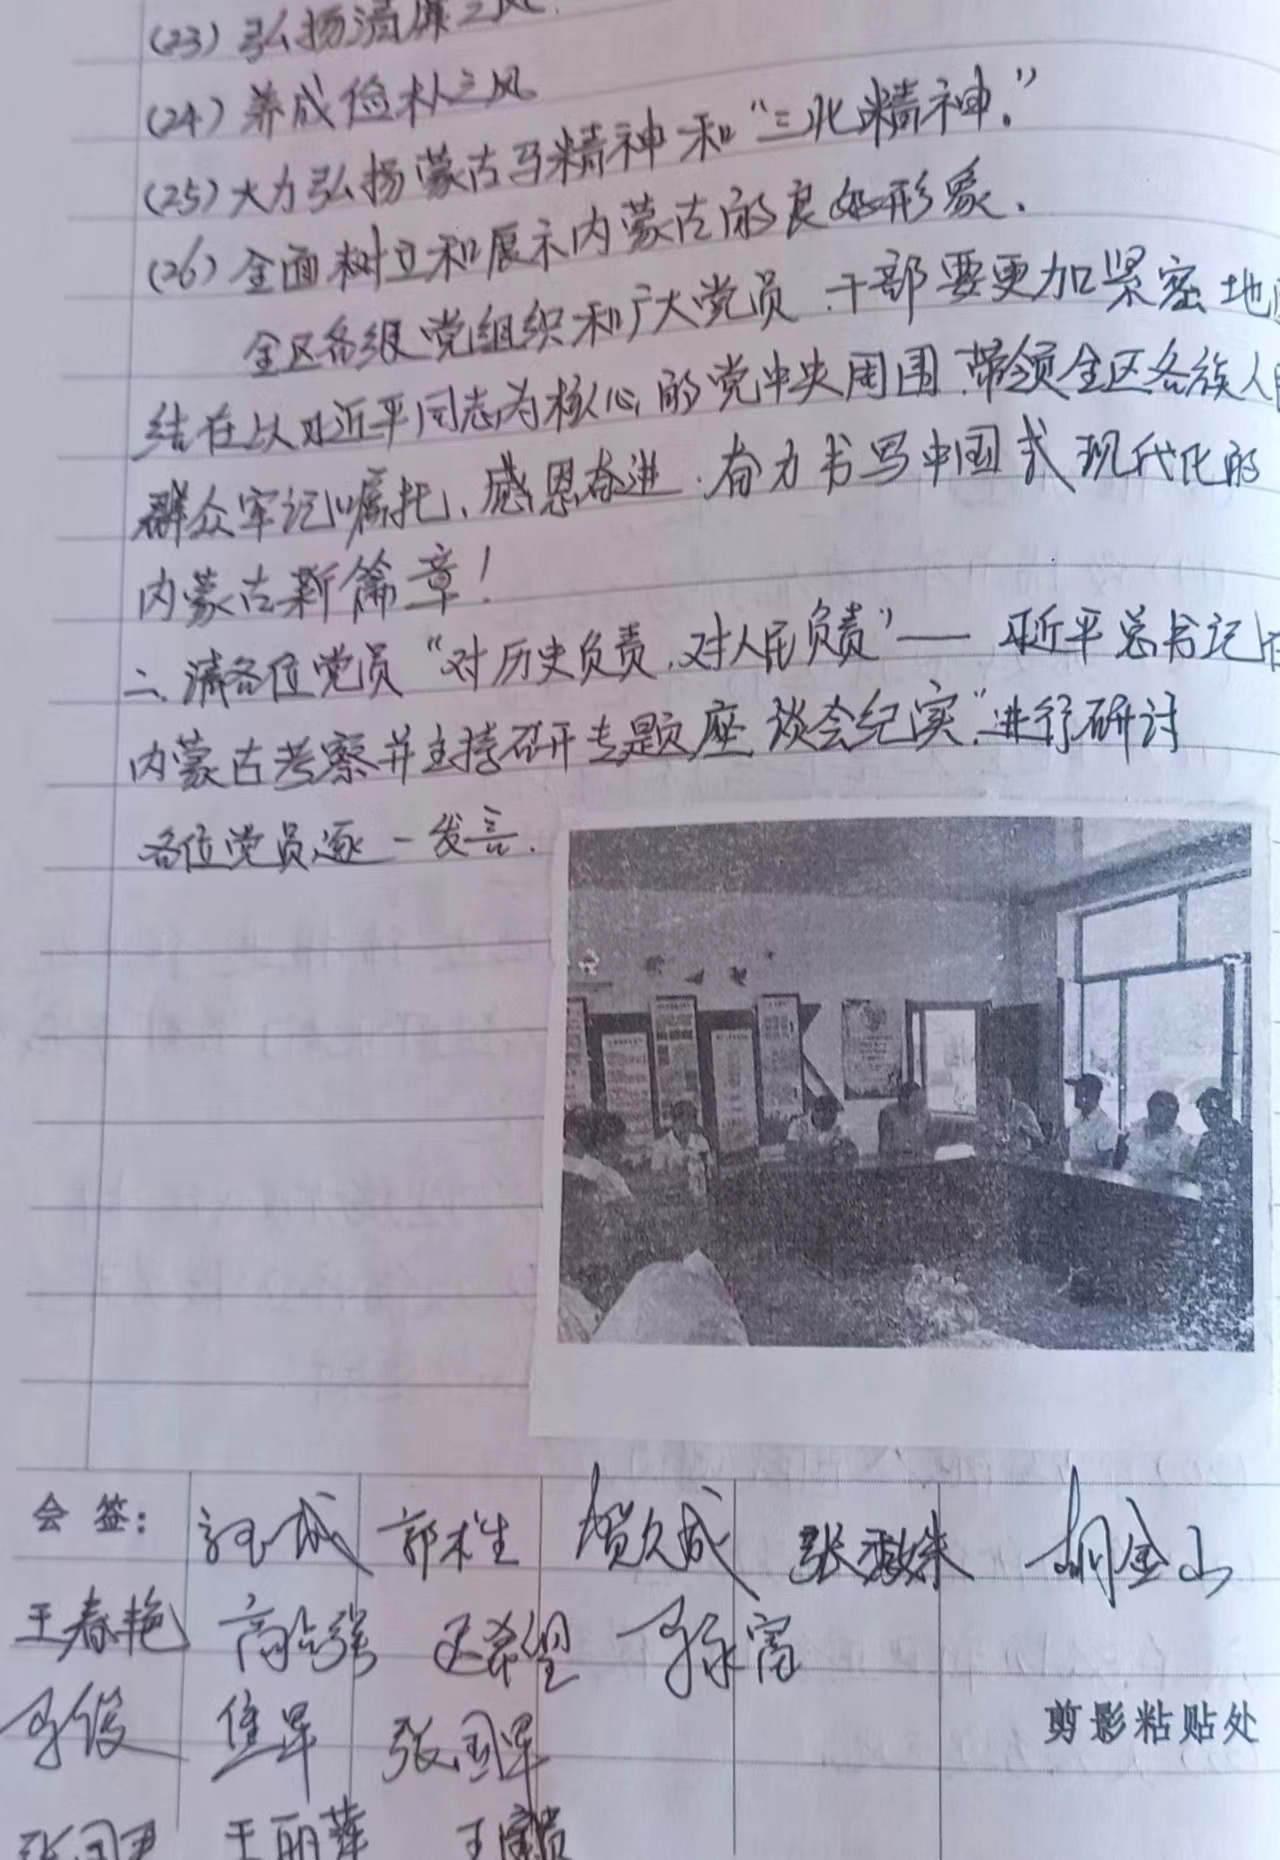 (23) 弘扬清廉之风.
(24) 养成俭朴之风
(25) 大力弘扬蒙古马精神和“三北精神.”
(26) 全面树立和展示内蒙古的良好形象.
全区各级党组织和广大党员.干部要更加紧密地
结在以习近平同志为核心的党中央周围.带领全区各族人
群众牢记嘱托、感恩奋进.奋力书写中国式现代化的
内蒙古新篇章!
二.请各位党员“对历史负责.对人民负责”——习近平总书记在
内蒙古考察并主持研专题座谈会纪实”进行研讨
各位党员逐一发言.
会签:
郭术生 贺久成 张 胡金山
王春艳 高 迟希望
张国军
王丽萍 王
剪影粘贴处